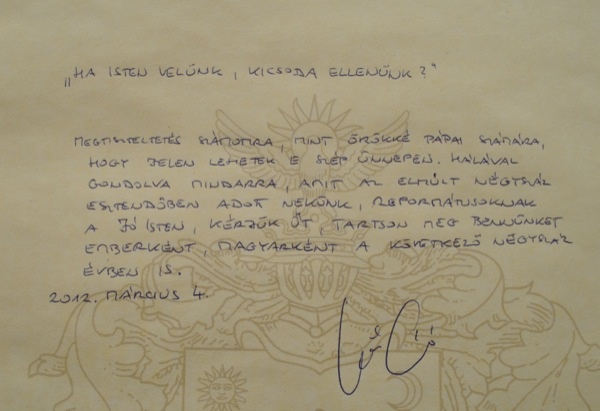 „HA ISTEN VELÜNK, KICSODA ELLENÜNK?"
MEGTISZTELTETÉS SZÁMOMRA, MINT ÖRÖKKÉ PÁPAI SZÁMÁRA,
HOGY JELEN LEHETEK E SZÉP ÜNNEPEN. HÁLÁVAL
GONDOLVA MINDARRA, AMIT AZ ELMÚLT NÉGYSZÁZ
ESZTENDŐBEN ADOTT NEKÜNK, REFORMÁTUSOKNAK
A JÓ ISTEN, KÉRJÜK ŐT, TARTSON MEG BENNÜNKET
EMBERKÉNT, MAGYARKÉNT A KÖVETKEZŐ NÉGYSZÁZ
ÉVBEN IS.
2012. MÁRCIUS 4.